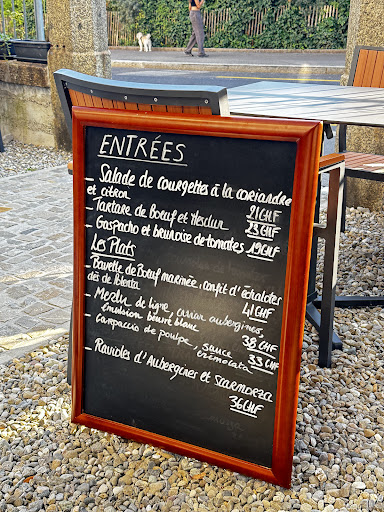 ENTRÉES
- Salade de courgettes à la coriandre
et citron 21CHF
- Tartare de Bœuf et Mesclun 23CHF
- Gaspacho et brunoise de tomates 19CHF
Les Plats
- Bavette de Bœuf marinée, confit d'échalotes
dés de Polenta 41CHF
- Merlu de ligne, caviar aubergines
émulsion beurre blanc 38CHF
- Carpaccio de poulpe, sauce
Gremolata 33CHF
- Ravioles d'Aubergines et Scarmorza
36CHF